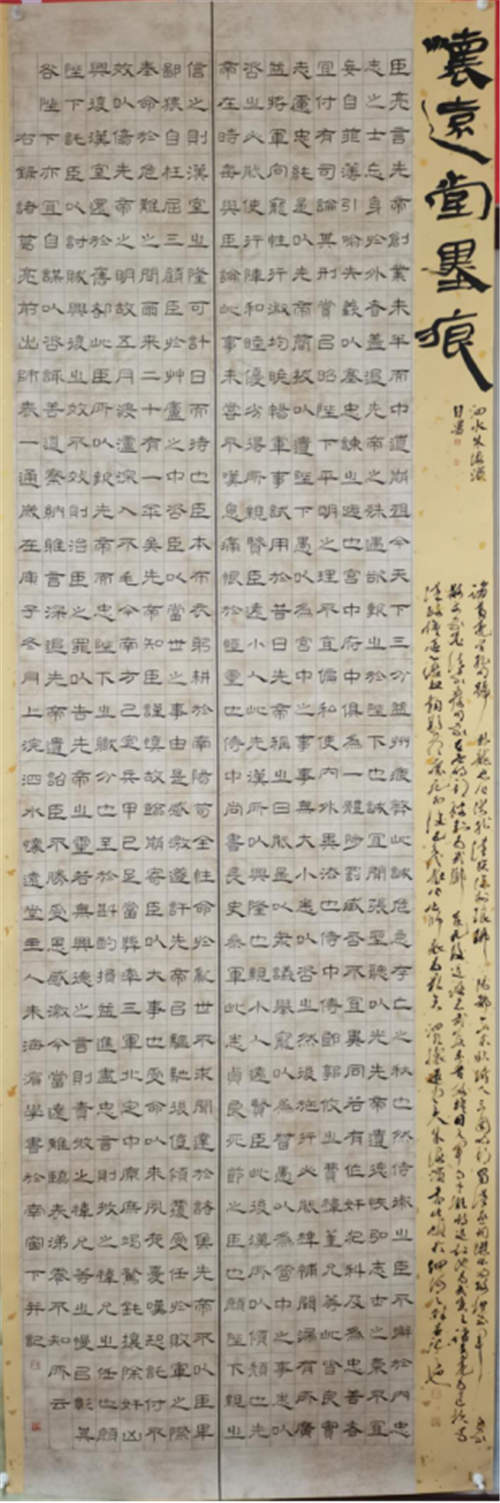 懷遠堂墨痕
泗水朱海濱
自署
臣亮言先帝創業未半而中道崩殂今天下三分益州疲弊此誠危急存亡之秋也然侍衛之臣不懈於內忠
志之士忘身於外者蓋追先帝之殊遇欲報之於陛下也誠宜開張聖聽以光先帝遺德恢弘志士之氣不宜
妄自菲薄引喻失義以塞忠諫之路也宮中府中俱為一體陟罰臧否不宜異同若有作奸犯科及為忠善者
宜付有司論其刑賞以昭陛下平明之理不宜偏私使內外異法也侍中侍郎郭攸之費禕董允等此皆良實
志慮忠純是以先帝簡拔以遺陛下愚以為宮中之事事無大小悉以咨之然後施行必能裨補闕漏有所廣
益將軍向寵性行淑均曉暢軍事試用於昔日先帝稱之曰能是以眾議舉寵以為督愚以為營中之事悉以
咨之必能使行陣和睦優劣得所親賢臣遠小人此先漢所以興隆也親小人遠賢臣此後漢所以傾頹也先
帝在時每與臣論此事未嘗不嘆息痛恨於桓靈也侍中尚書長史參軍此悉貞良死節之臣也願陛下親之
信之則漢室之隆可計日而待也臣本布衣躬耕於南陽苟全性命於亂世不求聞達於諸侯先帝不以臣卑
鄙猥自枉屈三顧臣於艸廬之中咨臣以當世之事由是感激遂許先帝以驅馳後值傾覆受任於敗軍之際
奉命於危難之間爾來二十有一年矣先帝知臣謹慎故臨崩寄臣以大事也受命以來夙夜憂嘆恐託付不
效以傷先帝之明故五月渡瀘深入不毛今南方已定兵甲已足當獎率三軍北定中原庶竭駑鈍攘除奸凶
興復漢室還於舊都此臣所以報先帝而忠陛下之職分也至於斟酌損益進盡忠言則攸之禕允之任也願
陛下託臣以討賊興復之效不效則治臣之罪以告先帝之靈若無興德之言則責攸之禕允等之慢以彰其
咎陛下亦宜自謀以咨諏善道察納雅言深追先帝遺詔臣不勝受恩感激今當遠離臨表涕零不知所云
右錄諸葛亮前出師表一通歲在庚子冬月上浣泗水懷遠堂主人朱海濱學書於南窗下并記